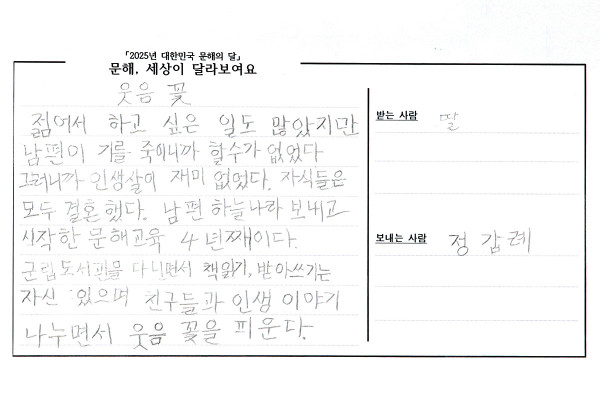 「2025년 대한민국 문해의 달」
문해, 세상이 달라보여요
웃음 꽃
젊어서 하고 싶은 일도 많았지만
남편이 기를 죽이니까 할수가 없었다
그러니까 인생살이 재미 없었다. 자식들은
모두 결혼했다. 남편 하늘나라 보내고
시작한 문해교육 4년째이다.
군립도서관을 다니면서 책읽기, 받아쓰기는
자신 있으며 친구들과 인생 이야기
나누면서 웃음 꽃을 피운다.
받는 사람 딸
보내는 사람 정갑례